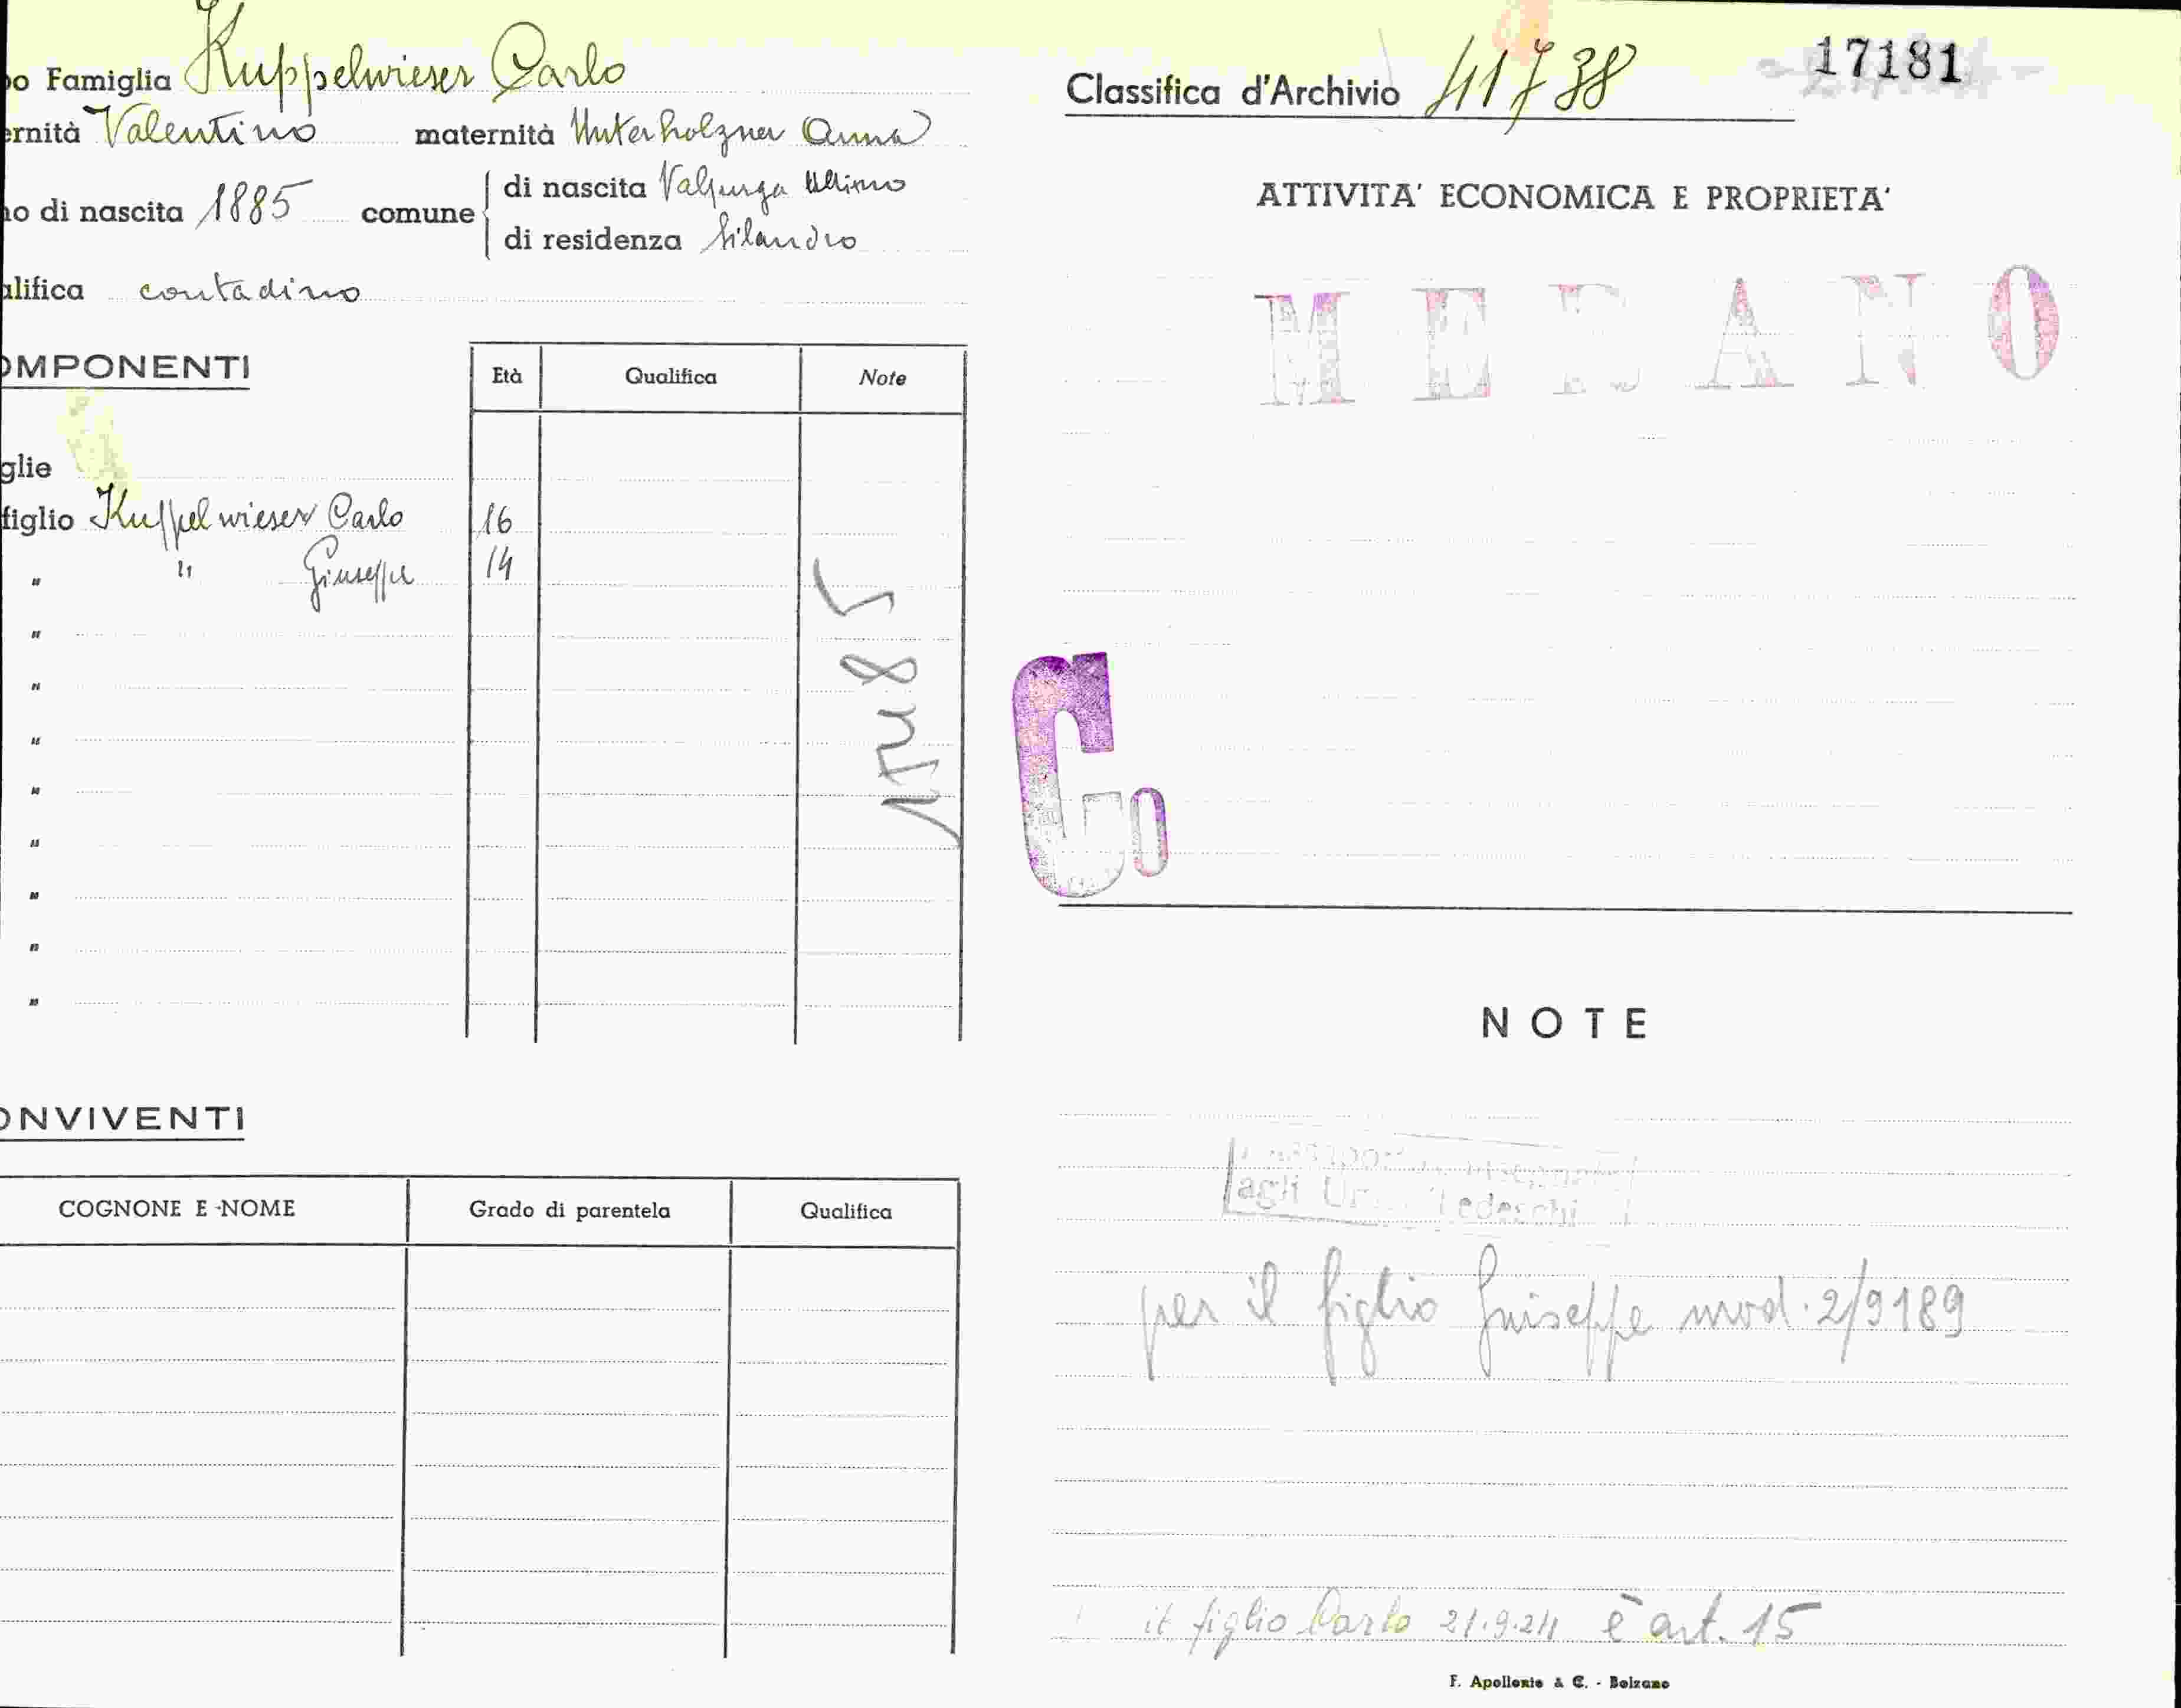 po Famiglia Kuppelwieser Carlo
ernità Valentino maternità Unterholzner Anna
no di nascita 1885 comune di nascita Valpurga Ultimo
di residenza Silandro
alifica contadino
OMPONENTI
Età Qualifica Note
glie
figlio Kuppelwieser Carlo 16
" " Giuseppe 14
"
"
"
"
"
"
"
"
ONVIVENTI
COGNONE E NOME Grado di parentela Qualifica
Classifica d'Archivio 41738
17181
ATTIVITA' ECONOMICA E PROPRIETA'
MERANO
Co
NOTE
agli Tedeschi
per il figlio Giuseppe mod. 2/9189
il figlio Carlo 21.9.24 è art. 15
F. Apollonio & C. - Bolzano